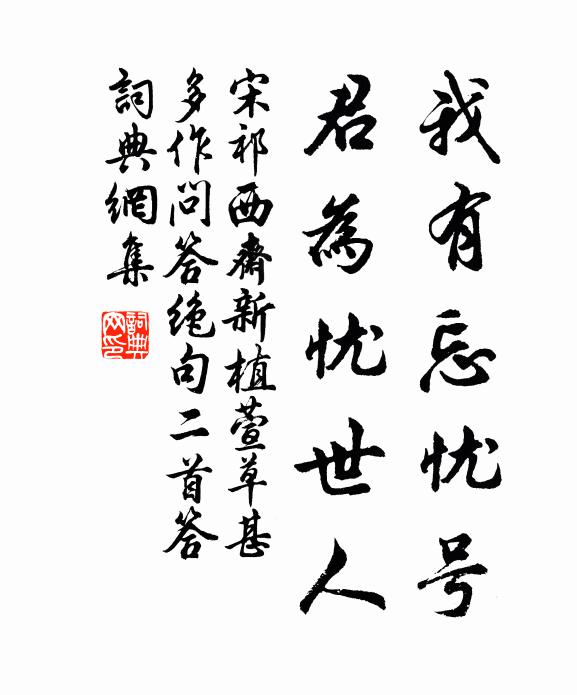 我有忘忧号
君為忧世人
宋祁西齋新植萱草甚
多作问答绝句二首答
詞典網集
詞典
网印